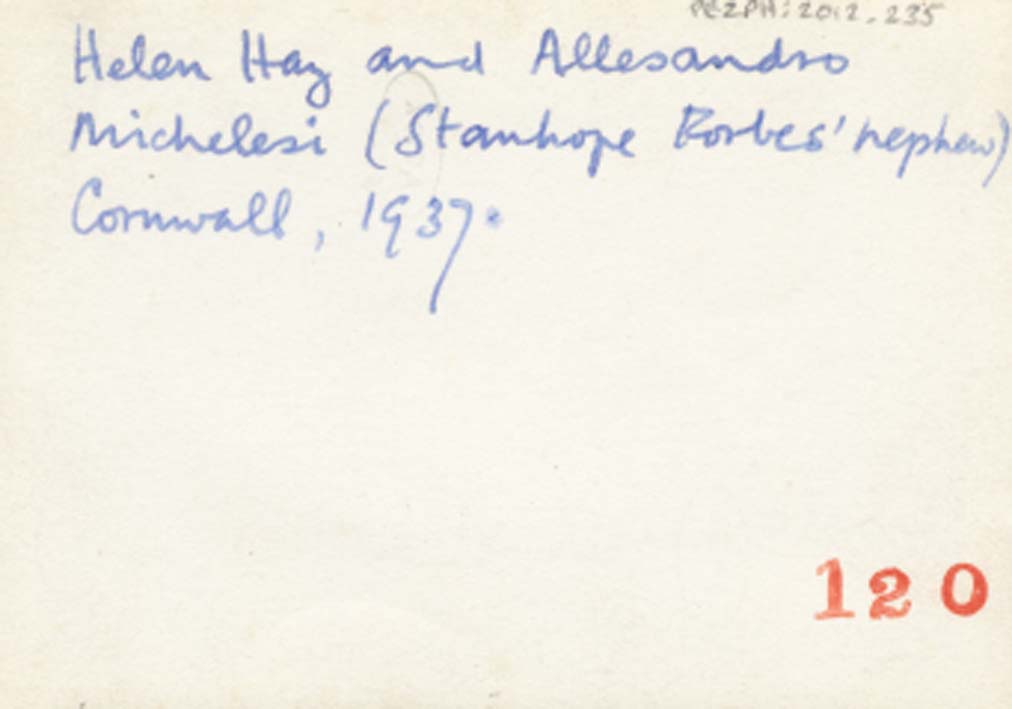 PEZPH:2012.235
Helen Hay and Allesandro
Michelesi (Stanhope Forbes' nephew)
Cornwall, 1937.
120